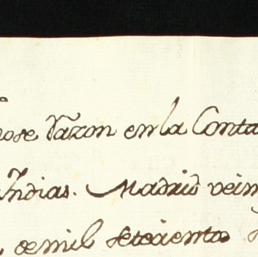 ose Razon en la Conta
Yndias. Madrid vein
de mil setecientos